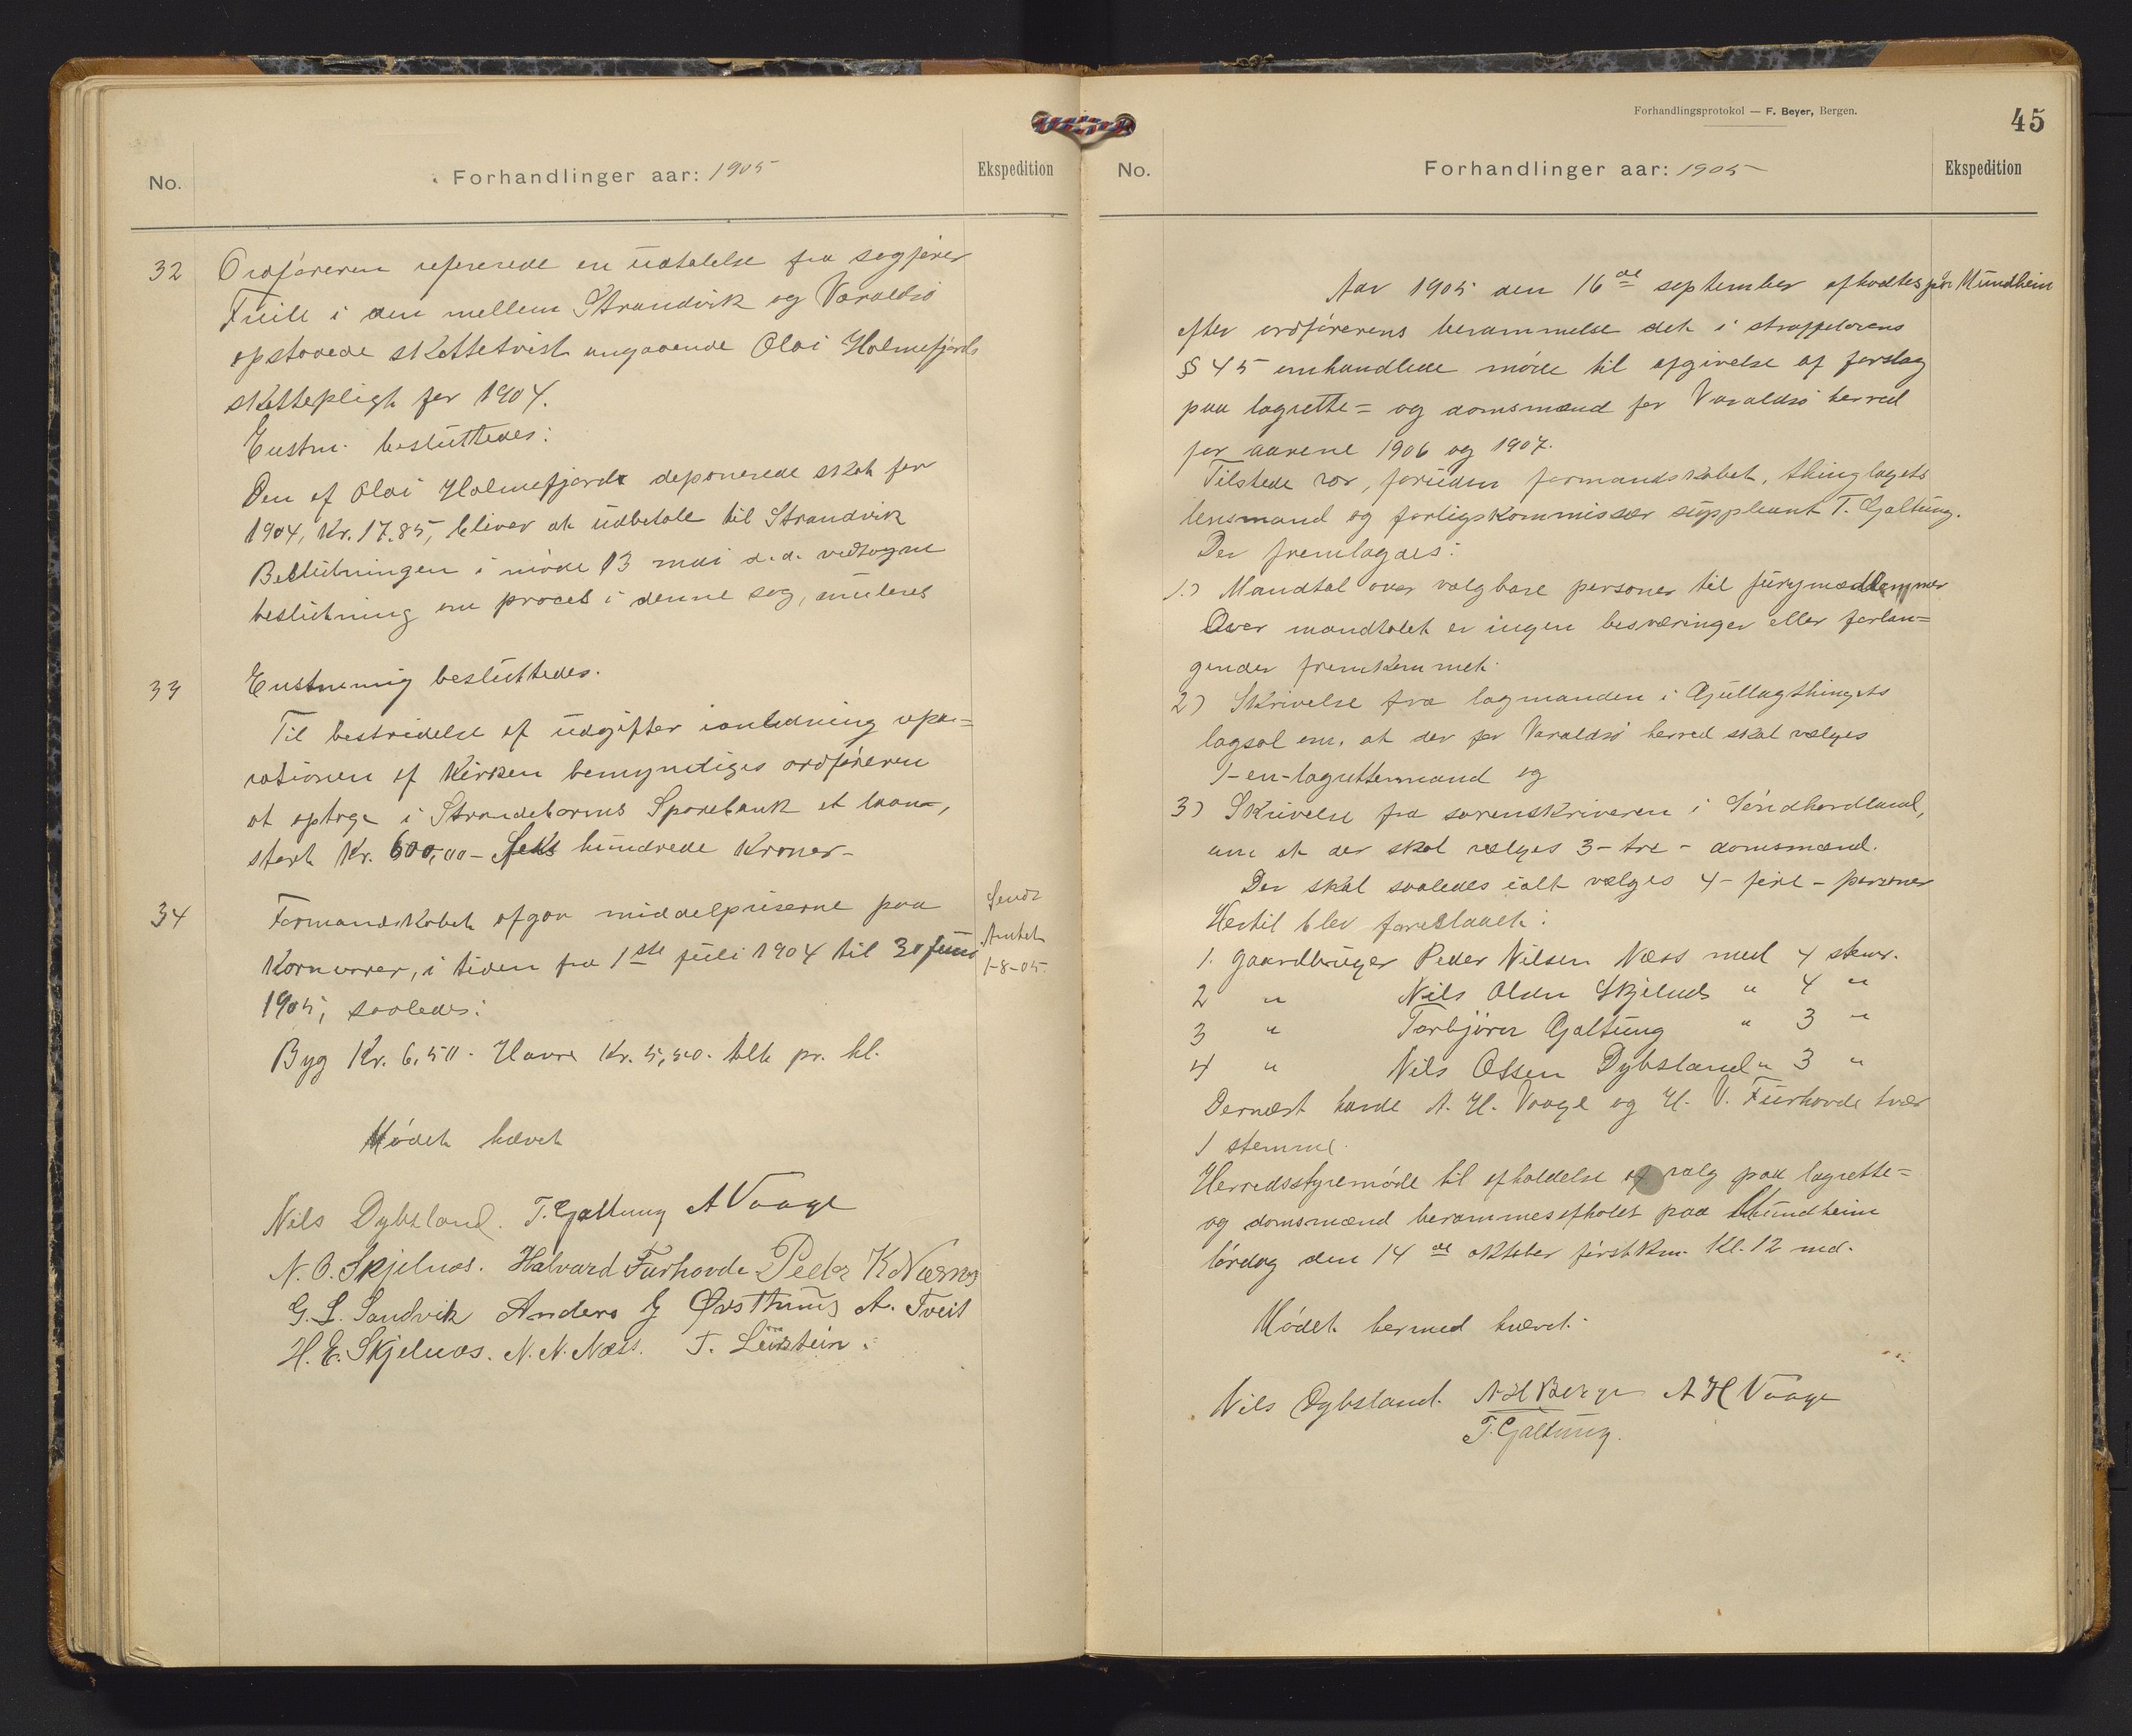 No.
Forhandlinger aar: 1905
Ekspedition
32
Ordføreren refererede en udtalelse fra sagfører
i den mellem Strandvik og Varaldsø
opstaaede skattetvist angaaende Olai Holmefjords
skattepligt for 1904.
Enstm. besluttedes:
Den af Olai Holmefjord deponerede skat for
1904, Kr. 17.85, bliver at udbetale til Strandvik
Beslutningen i møde 13 mai d.a. vedtagne
beslutning om proces i denne sag, anuleres
33
Enstemmig besluttedes.
Til bestridelse af udgifter i anledning repa=
rationen af Kirken bemyndiges ordføreren
at optage i Strandebarms Sparebank et laan,
stort Kr. 600,00 - Seks hundrede Kroner -
34
Formandskabet afgav middelpriserne paa
Kornvarer, i tiden fra 1ste juli 1904 til 30 juni
1905, saaledes:
Byg Kr. 6,50 - Havre Kr. 5,50. alt pr. hl.
Sendt
Amtet
1-8-05.
Mødet hævet
Nils Dybsland. T. Galtung A Vaage
N. O. Skjelnæs. Halvard Furhovde Peder K Næss
G. L. Sandvik Anders G Øvsthuus A. Tveit
H. E. Skjelnæs. N. N. Næss. T.
Forhandlingsprotokol — F. Beyer, Bergen.
45
No.
Forhandlinger aar: 1905
Ekspedition
Aar 1905 den 16de september afholdtes paa Mundheim
efter ordførerens berammelse det i straffelovens
§ 45 omhandlede møde til afgivelse af forslag
paa lagrette= og domsmænd for Varaldsø herred
for aarene 1906 og 1907.
Tilstede var, foruden formandskabet, thinglagets
lensmand og forligskommissær suppleant T. Galtung.
Der fremlagdes:
1.) Mandtal over valgbare personer til jurymedlemmer
Over mandtalet er ingen besværinger eller forlan=
gender fremkommet.
2) Skrivelse fra lagmanden i Gullagthingets
lagsal om, at der for Varaldsø herred skal vælges
1-en-lagrettemand og
3) Skrivelse fra sorenskriveren i Søndhordland,
om at der skal vælges 3 - tre - domsmænd.
Der skal saaledes ialt vælges 4 - fire - personer
Hertil blev foreslaaet:
1. gaardbruger Peder Nilsen Næss med 4 stem.
2 " Nils Olsen Skjelnæs " 4 "
3 " Torbjørn Galtung " 3 "
4 " Nils Olsen Dybsland " 3 "
Dernæst havde A. H. Vaage og H. V. Furhovde hver
1 stemme.
Herredsstyremøde til afholdelse af valg paa lagrette=
og domsmænd berammes afholdt paa Mundheim
lørdag den 14de oktober førstkm. Kl. 12 md.
Mødet hermed hævet.
Nils Dybsland. N H Berge A H Vaage
T. Galtung.